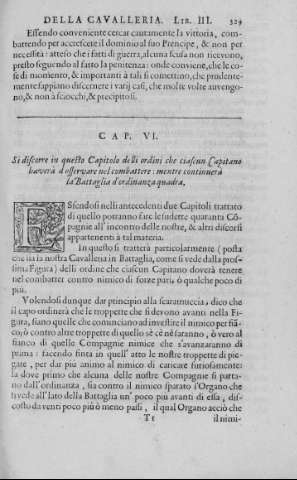 DELLA CAVALLERIA. LIB. III. 329
Essendo conveniente cercar cautamente la vittoria, com-
battendo per accrescere il dominio al suo Prencipe, & non per
necessità: atteso che i fatti di guerra, alcuna scusa non ricevono,
presto seguendo al fatto la penitenza: onde conviene, che le co-
se di momento, & importanti à tali si comettino, che prudente-
mente sappiano discernere i varij casi, che molte volte avengo-
no, & non à sciocchi, & precipitosi.
CAP. VI.
Si discorre in questo Capitolo delli ordini che ciascun Capitano
haverà d'osservare nel combattere: mentre continuerà
la Battaglia d'ordinanza quadra.
ESsendosi nelli antecedenti due Capitoli trattato
di quello potranno fare le sudette quaranta Cõ-
pagnie all'incontro delle nostre, & altri discorsi
appartenenti à tal materia.
In questo si tratterà particolarmente (posta
che sia la nostra Cavalleria in Battaglia, come si vede dalla pros-
sima Figura) delli ordine che ciascun Capitano doverà tenere
nel combatter contro nimico di forze pari, ò qualche poco di
piu.
Volendosi dunque dar principio alla scaramuccia, dico che
il capo ordinerà che le troppette che si devono avanti nella Fi-
gura, siano quelle che comincino ad investire il nimico per fiã-
co, ò contro altre troppette di quello se ce ne saranno, ò vero al
fianco di quelle Compagnie nimice che s'avanzaranno di
prima: facendo finta in quell'atto le nostre troppette di pie-
gate, per dar piu animo al nimico di caricare furiosamente:
la dove primo che alcuna delle nostre Compagnie si parta-
no dall'ordinanza, sia contro il nimico sparato l'Organo che
si vede all'lato della Battaglia un' poco più avanti di essa, dis-
costo da venti poco più ò meno passi, il qual Organo acciò che
Tt il nimi-